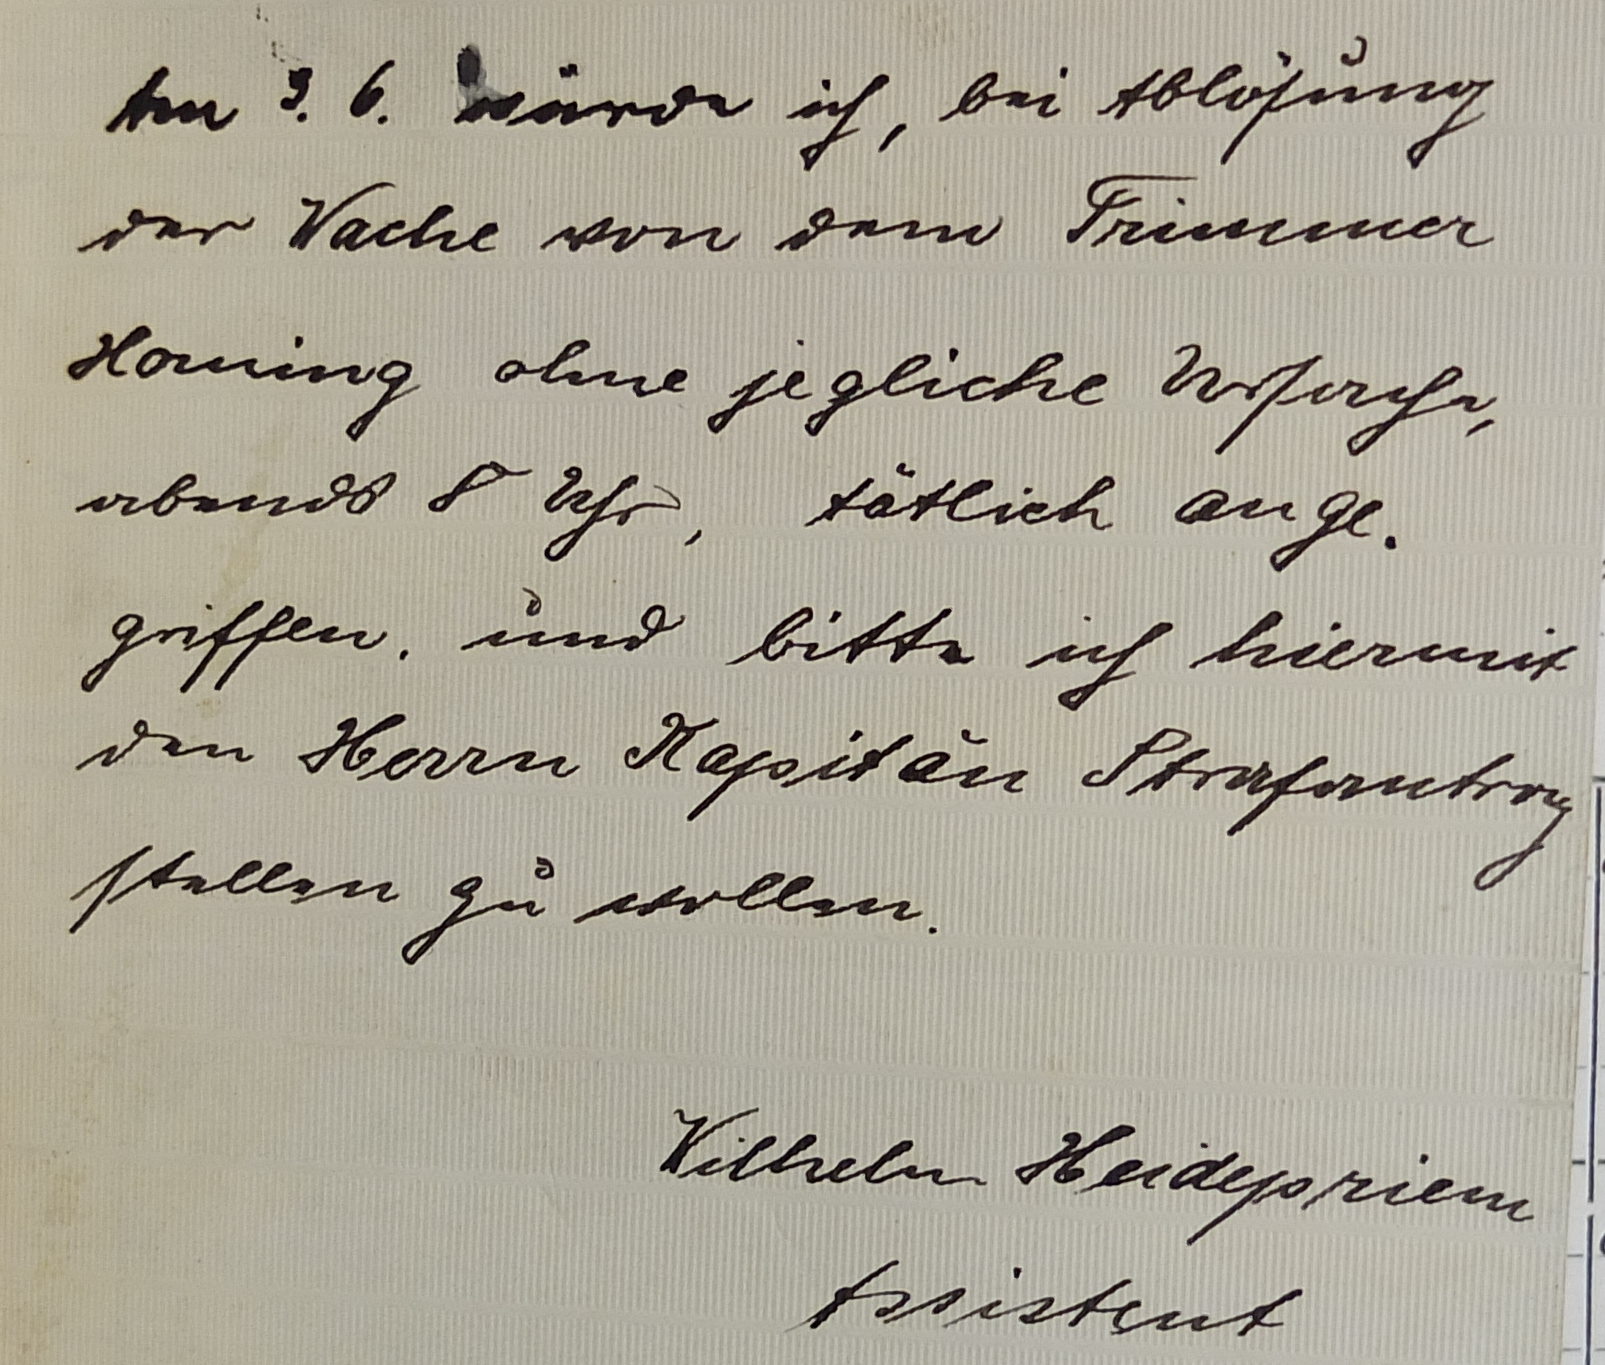 Am 3. 6. wurde ich, bei Ablösung
der Wache von dem Trimmer
Horning ohne jegliche Ursache,
abends 8 Uhr, tätlich ange.
griffen. und bitte ich hiermit
den Herrn Kapitän Strafantrag
stellen zu wollen.
Wilhelm Heidepriem
Assistent